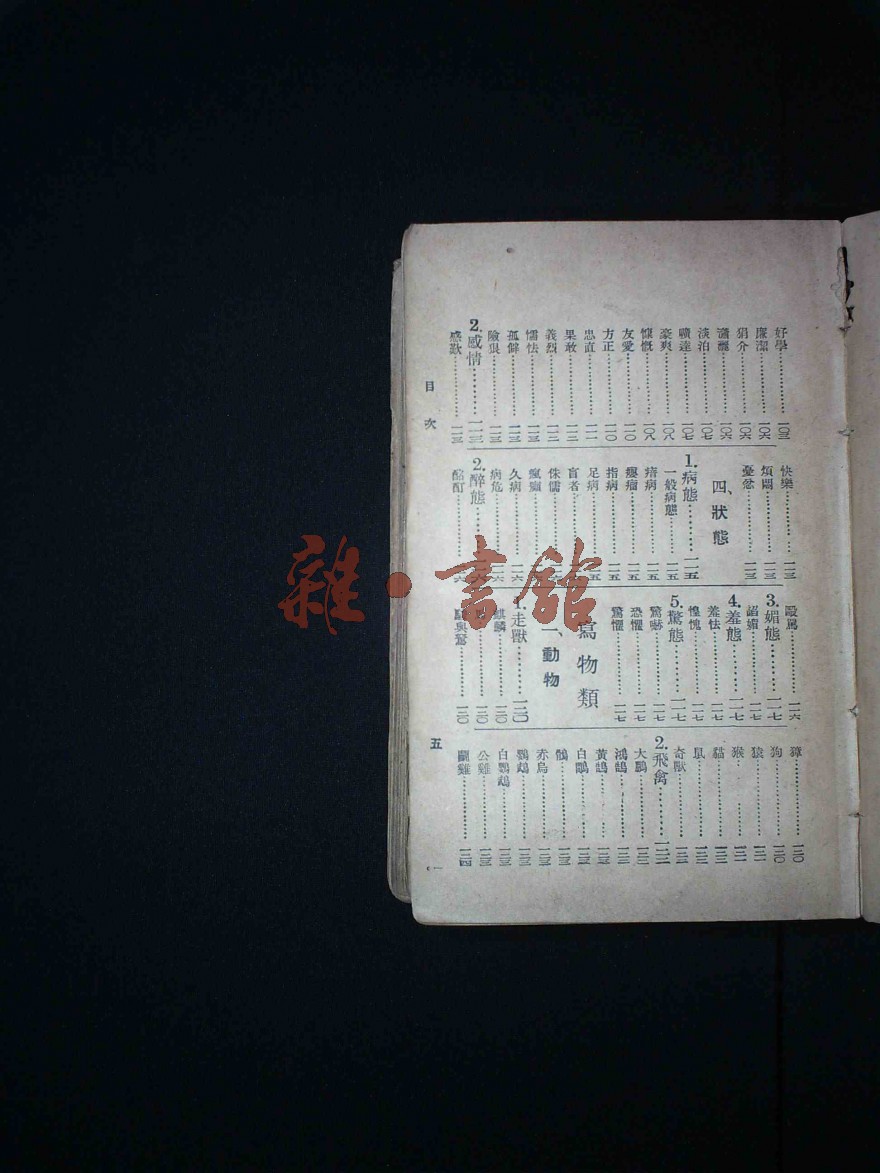 好學……………一〇三
廉潔……………一〇六
狷介……………一〇六
瀟灑……………一〇六
淡泊……………一〇七
曠達……………一〇七
豪爽……………一〇八
慷慨……………一〇八
友愛……………一一〇
方正……………一一〇
忠直……………一一一
果敢……………一一二
義烈……………一一二
懦怯……………一一三
孤僻……………一一三
險狠……………一一三
2.感情……………一一三
感歎……………一一三
快樂……………一二三
煩悶……………一二三
憂忿……………一二三
四、狀態
1.病態……………一一五
一般病態……………一一五
瘖病……………一一五
癭瘤……………一一五
指病……………一一五
足病……………一一五
盲者
侏儒
瘋癲
久病……………一一六
病危
2.醉態
酩酊
毆罵……………一一六
3.媚態……………一一七
諂媚……………一一七
4.羞態……………一一七
羞怯……………一一七
惶愧……………一一七
5.驚態……………一一七
驚嚇……………一一七
恐懼……………一一七
驚懼……………一一七
寫物類
一、動物
1.走獸……………一二〇
麒麟……………一二〇
獐……………一二〇
狗……………一二〇
猿……………一二一
猴……………一二一
貓……………一二二
鼠……………一二二
奇獸……………一二二
2.飛禽……………一二二
大鵬……………一二二
鴻鵠……………一二二
黃鵠……………一二三
白鷴……………一二三
鶻……………一二三
赤烏……………一二三
鸚鵡……………一二三
白鸚鵡……………一二三
公雞……………一二三
鬭雞……………一二四
目次
五
雜·書館